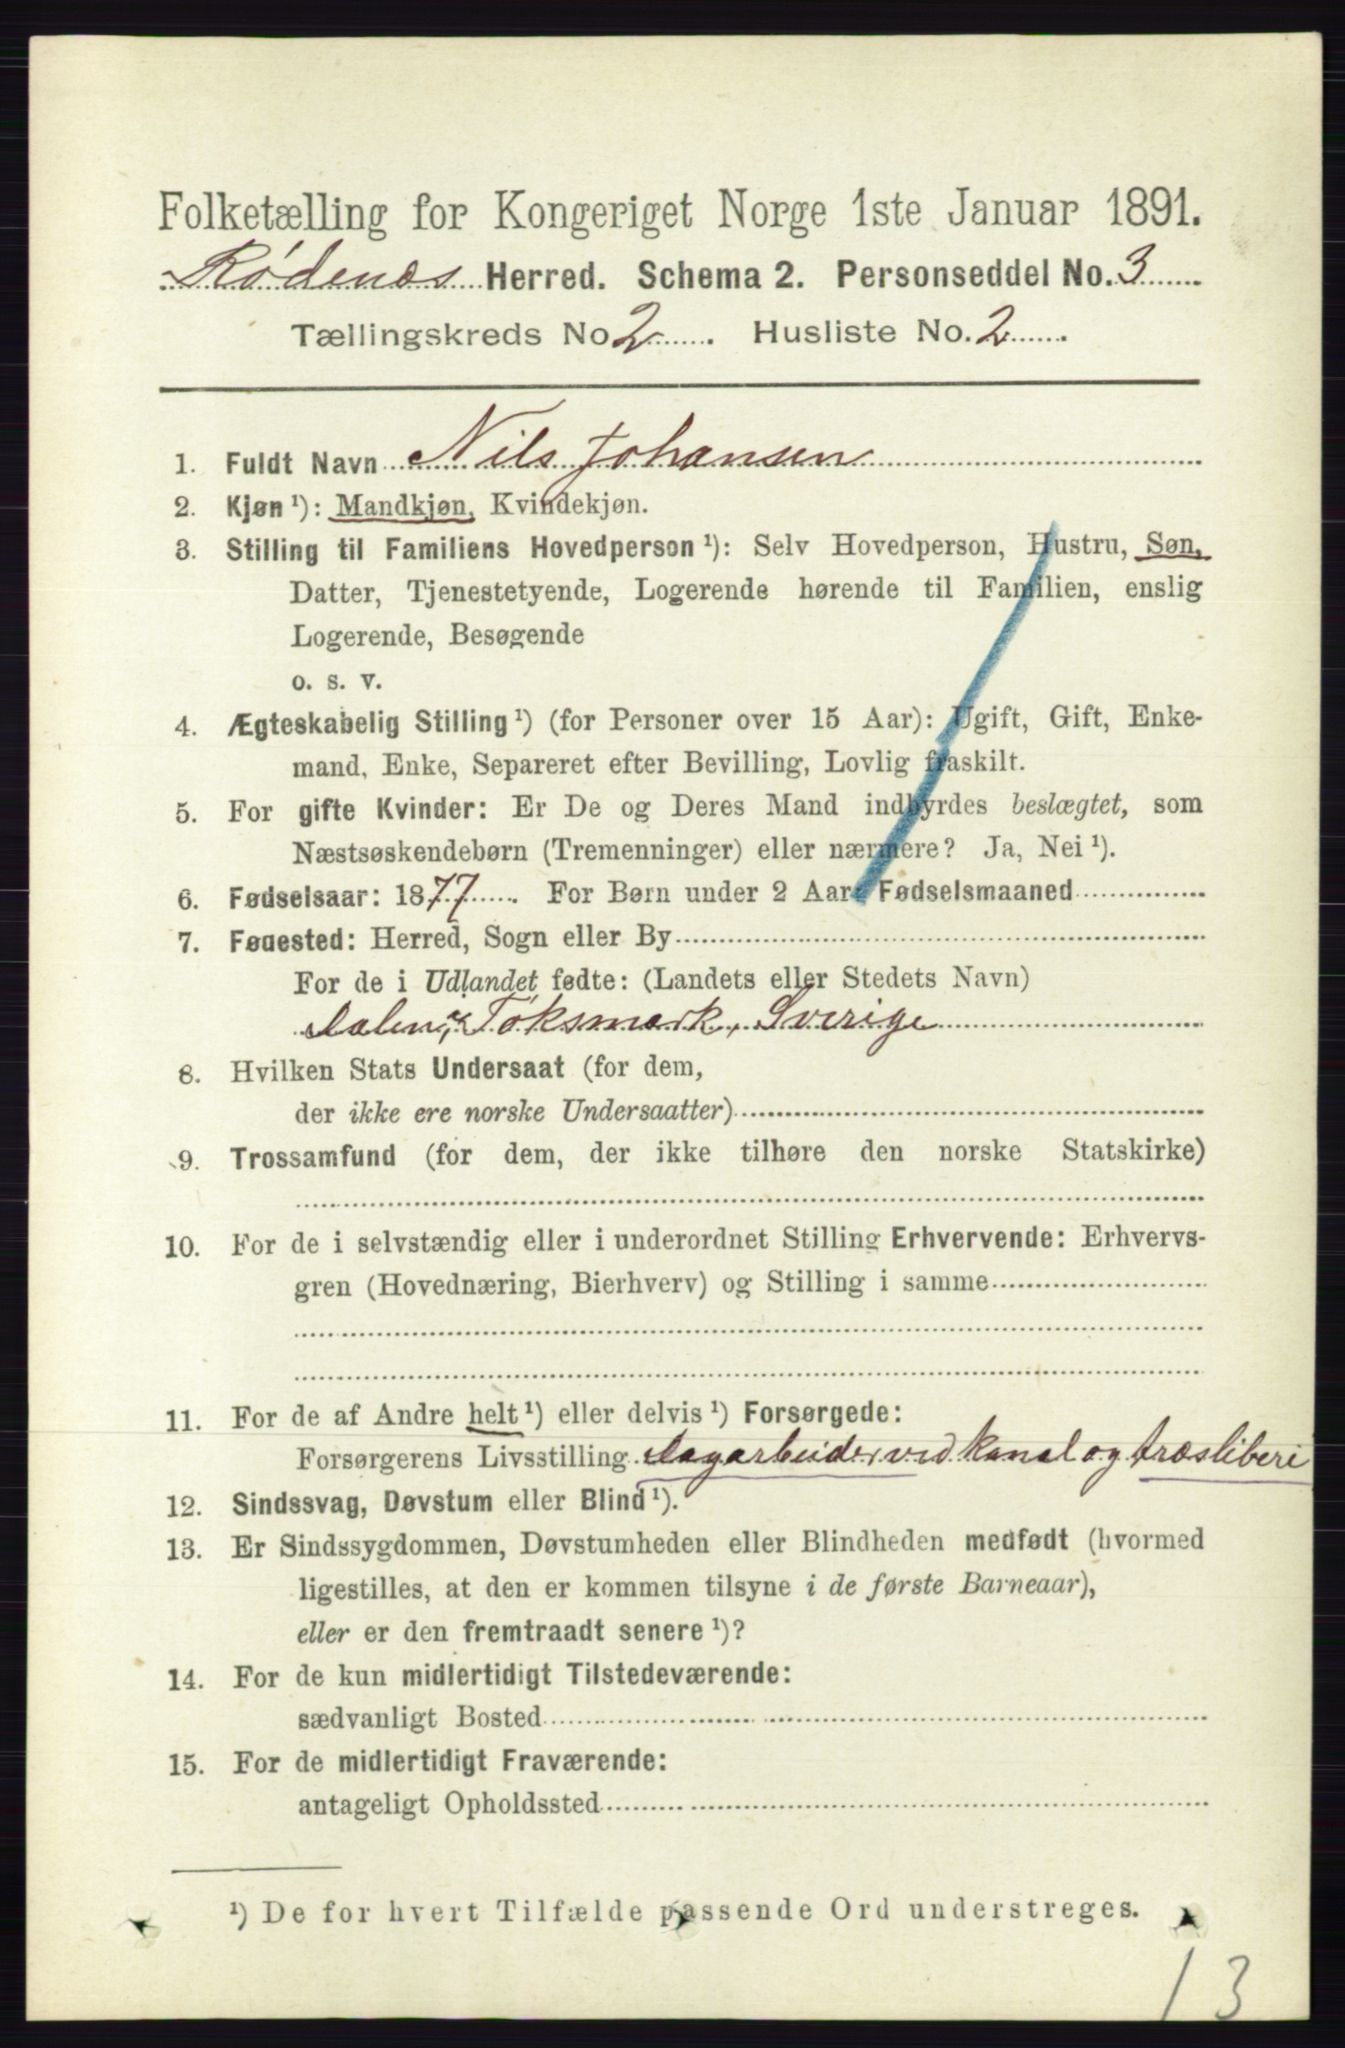 Folketælling for Kongeriget Norge 1ste Januar 1891.
Rødenæs Herred. Schema 2. Personseddel No. 3
Tællingskreds No 2. Husliste No. 2.
1. Fuldt Navn Nils Johansen
2. Kjøn ¹): Mandkjøn, Kvindekjøn.
3. Stilling til Familiens Hovedperson ¹): Selv Hovedperson, Hustru, Søn,
Datter, Tjenestetyende, Logerende hørende til Familien, enslig
Logerende, Besøgende
o. s. v.
4. Ægteskabelig Stilling ¹) (for Personer over 15 Aar): Ugift, Gift, Enke-
mand, Enke, Separeret efter Bevilling, Lovlig fraskilt.
5. For gifte Kvinder: Er De og Deres Mand indbyrdes beslægtet, som
Næstsøskendebørn (Tremenninger) eller nærmere? Ja, Nei ¹).
6. Fødselsaar: 1877. For Børn under 2 Aar: Fødselsmaaned
7. Fødested: Herred, Sogn eller By
For de i Udlandet fødte: (Landets eller Stedets Navn)
Töksmark, Sverige
8. Hvilken Stats Undersaat (for dem,
der ikke ere norske Undersaatter)
9. Trossamfund (for dem, der ikke tilhøre den norske Statskirke)
10. For de i selvstændig eller i underordnet Stilling Erhvervende: Erhvervs-
gren (Hovednæring, Bierhverv) og Stilling i samme
11. For de af Andre helt ¹) eller delvis ¹) Forsørgede:
Forsørgerens Livsstilling Dagarbeider ved kanal og træsliberi
12. Sindssvag, Døvstum eller Blind ¹).
13. Er Sindssygdommen, Døvstumheden eller Blindheden medfødt (hvormed
ligestilles, at den er kommen tilsyne i de første Barneaar),
eller er den fremtraadt senere ¹)?
14. For de kun midlertidigt Tilstedeværende:
sædvanligt Bosted
15. For de midlertidigt Fraværende:
antageligt Opholdssted
¹) De for hvert Tilfælde passende Ord understreges.
13